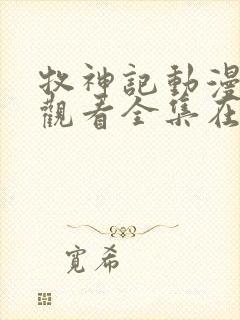 牧神記動漫
觀看全集在
寬希